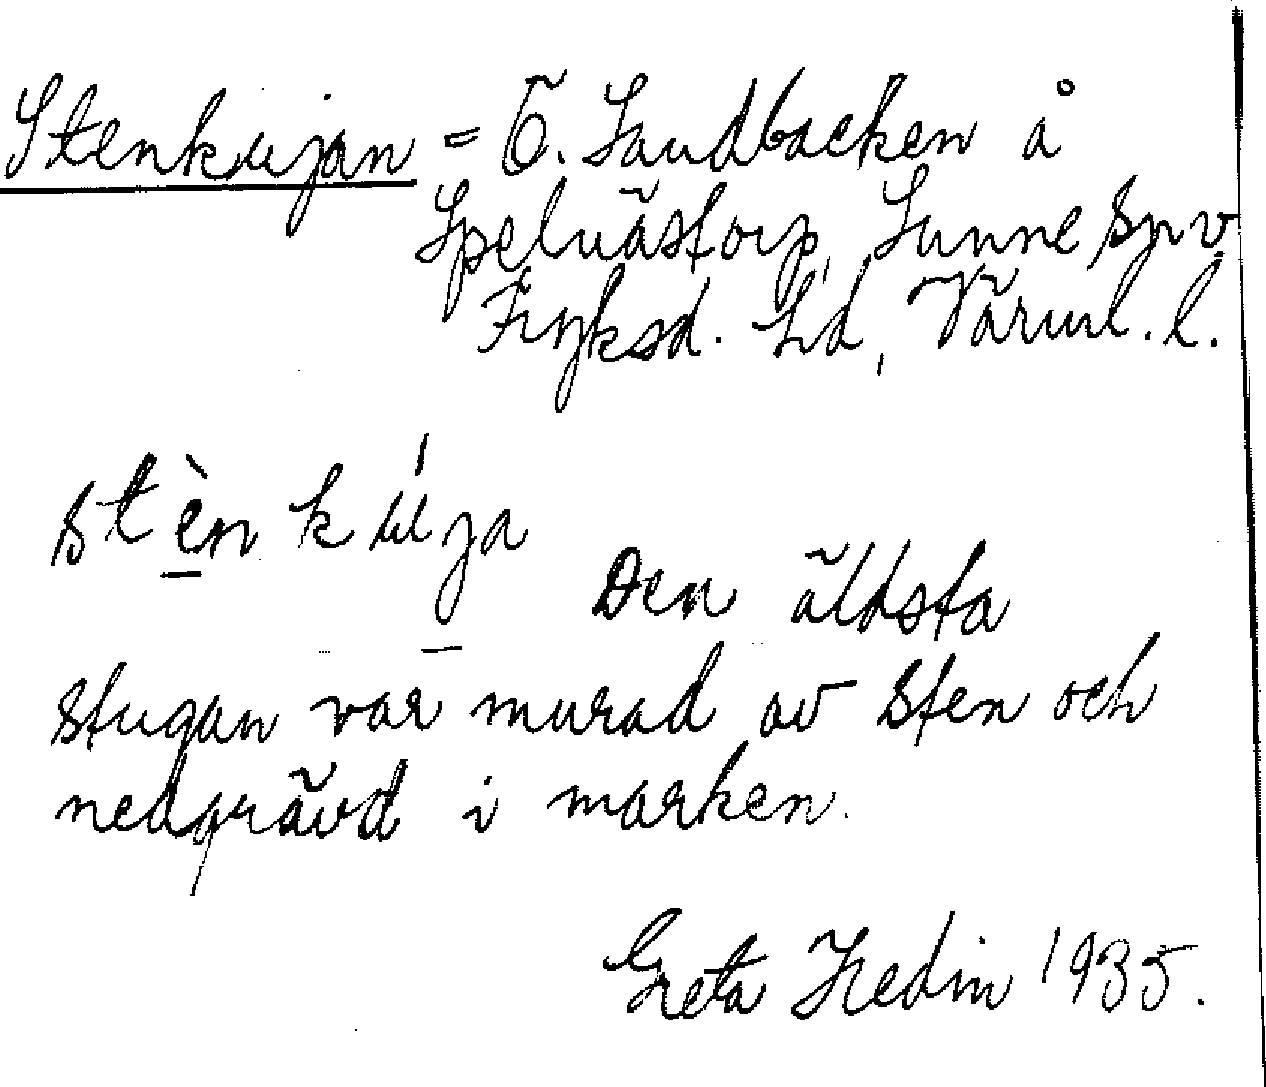 Stenkujan = Ö. Sandbacken å
Spelnästorp, Sunne sn v
Fryksd. hd, Värml. l.
stèn kúja
Den äldsta
stugan var murad av sten och
nedgrävd i marken.
Greta Hedin 1935.